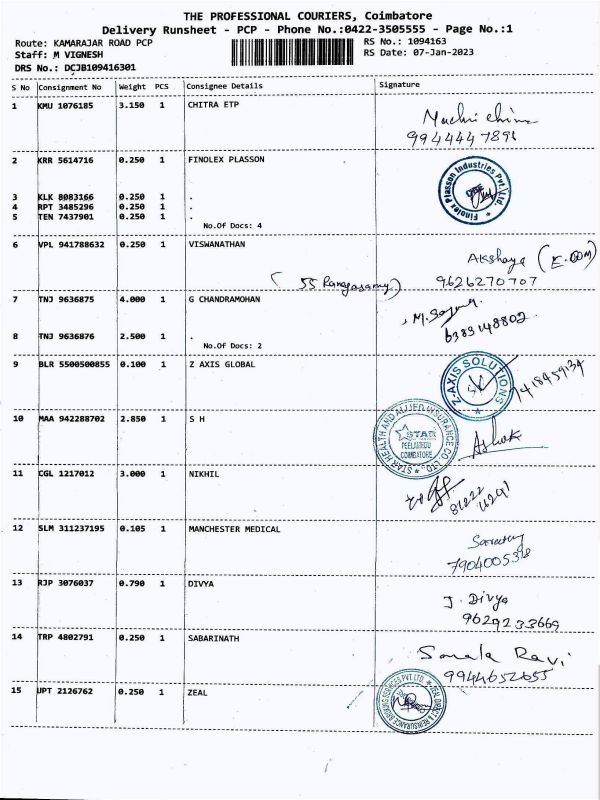 THE PROFESSIONAL COURIERS, Coimbatore
Delivery Runsheet - PCP - Phone No.:0422-3505555 - Page No.:1
Route: KAMARAJAR ROAD PCP RS No.: 1094163
Staff: M VIGNESH RS Date: 07-Jan-2023
DRS No.: DCJB109416301
S No Consignment No Weight PCS Consignee Details Signature
1 KMU 1076185 3.150 1 CHITRA ETP
2 KRR 5614716 0.250 1 FINOLEX PLASSON
Finolex Plasson Industries Pvt. Ltd.
3 KLK 8083166 0.250 1 .
4 RPT 3485296 0.250 1 .
5 TEN 7437901 0.250 1 .
No.Of Docs: 4
6 VPL 941788632 0.250 1 VISWANATHAN
Akshaya (E.COM)
(55 Rangasamy) 9626270707
7 TNJ 9636875 4.000 1 G CHANDRAMOHAN
6383148802
8 TNJ 9636876 2.500 1 .
No.Of Docs: 2
9 BLR 5500500855 0.100 1 Z AXIS GLOBAL
Z-AXIS SOLUTIONS
10 MAA 942288702 2.850 1 S H
STAR HEALTH AND ALLIED INSURANCE CO. LTD.
STAR
PEELAMEDU
COIMBATORE
Ashok
11 CGL 1217012 3.000 1 NIKHIL
12 SLM 311237195 0.105 1 MANCHESTER MEDICAL
13 RJP 3076037 0.790 1 DIVYA
J. Divya
9629233669
14 TRP 4802791 0.250 1 SABARINATH
Ravi
9944652655
15 UPT 2126762 0.250 1 ZEAL